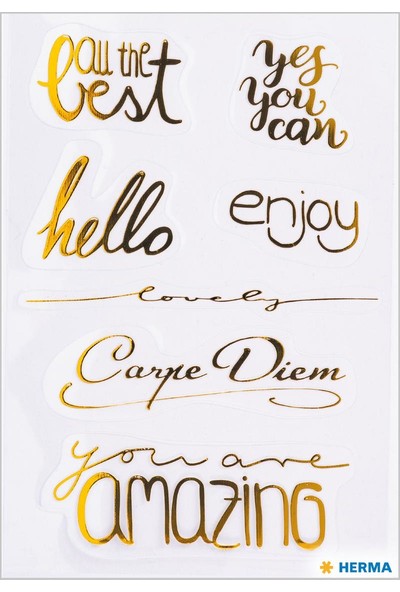 all the
best
yes
you
can
hello
enjoy
lovely
Carpe Diem
you are
amazing
HERMA